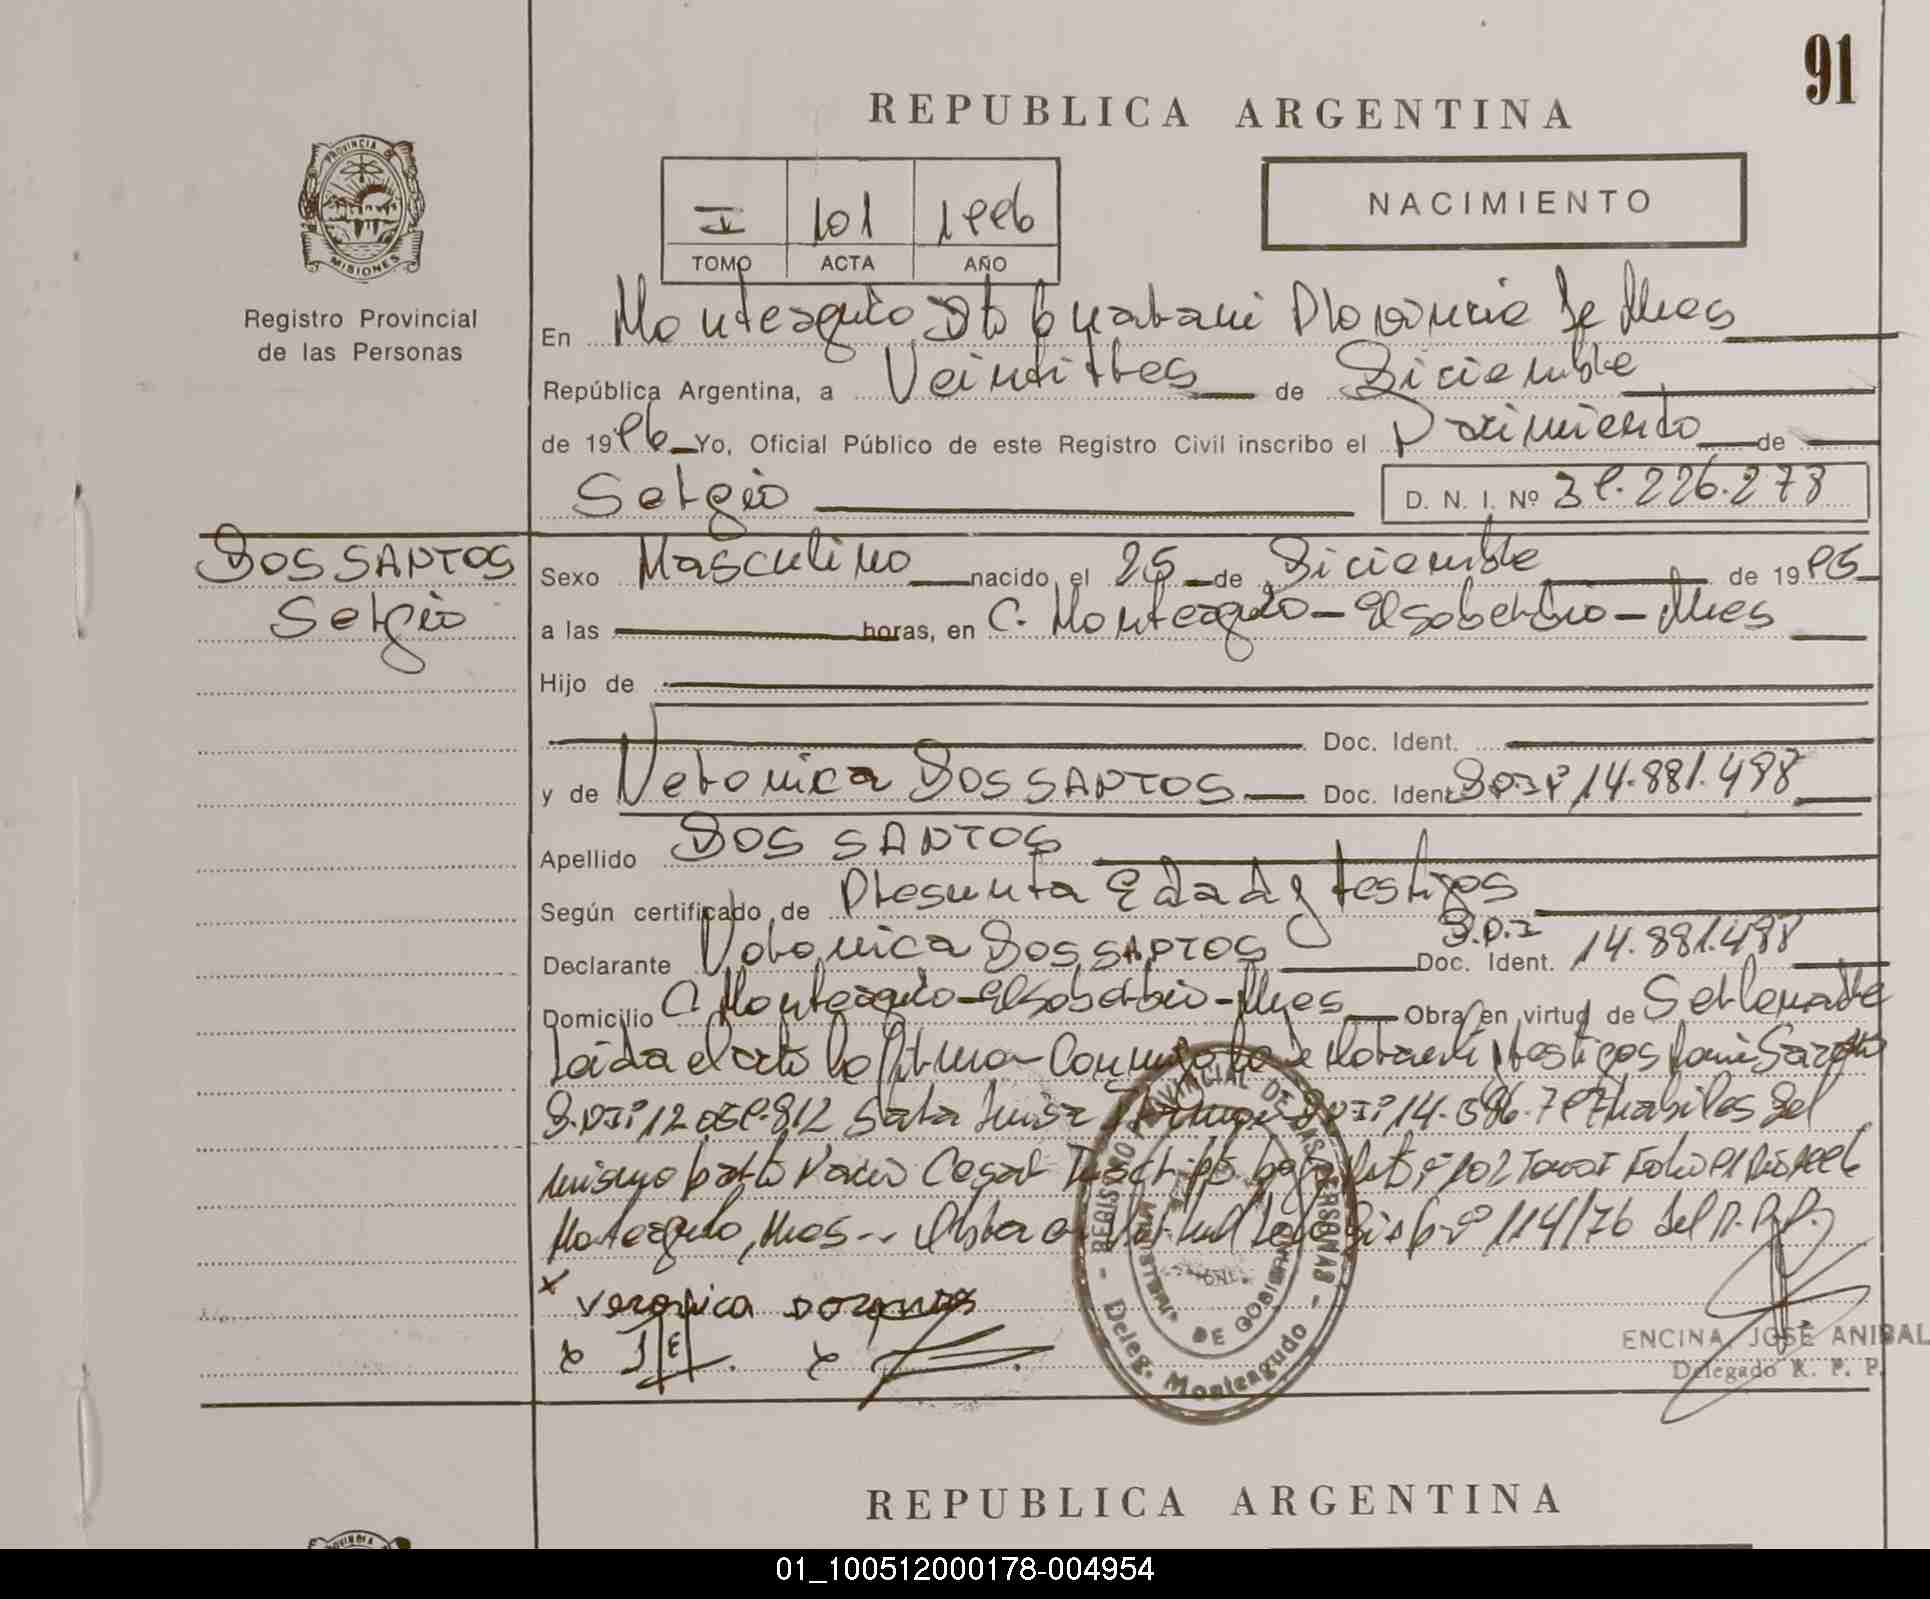 91
REPUBLICA ARGENTINA
PROVINCIA DE
MISIONES
Registro Provincial
de las Personas
NACIMIENTO
I 101 1996
TOMO ACTA AÑO
En Monteagudo Dto Guarani Provincia de Mnes
República Argentina, a Veintitres de Diciembre
de 1996 Yo, Oficial Público de este Registro Civil inscribo el Nacimiento de
Sergio D. N. I. Nº 39.226.273
DOS SANTOS
Sergio
Sexo Masculino nacido el 25 de Diciembre de 1995
a las horas, en C. Monteagudo - El Soberbio - Mnes
Hijo de
Doc. Ident.
y de Veronica DOS SANTOS Doc. Ident. D.N.I Nº 14.881.498
Apellido DOS SANTOS
Según certificado de Presunta Edad y testigos
Declarante Veronica DOS SANTOS Doc. Ident. D.N.I 14.881.498
Domicilio C. Monteagudo - El Soberbio - Mnes Obra en virtud de Ser la madre
Leida el acta la firman Conmigo la de testigos
D.N.I Nº 12 812 Sara Luisa D.N.I Nº 14. habiles del
mismo parto Nacio Cesar Inscripto bajo Acta Nº 102 Tomo I Folio 91 Año 1996
Monteagudo, Mnes -- Obra en Virtud Nº 114/76 del R.P.P.
x Veronica
x x
REGISTRO PROVINCIAL DE LAS PERSONAS
MINISTERIO DE GOBIERNO
MISIONES
- Deleg. Monteagudo -
ENCINA, JOSÉ ANIBAL
Delegado R. P. P.
REPUBLICA ARGENTINA
01_100512000178-004954